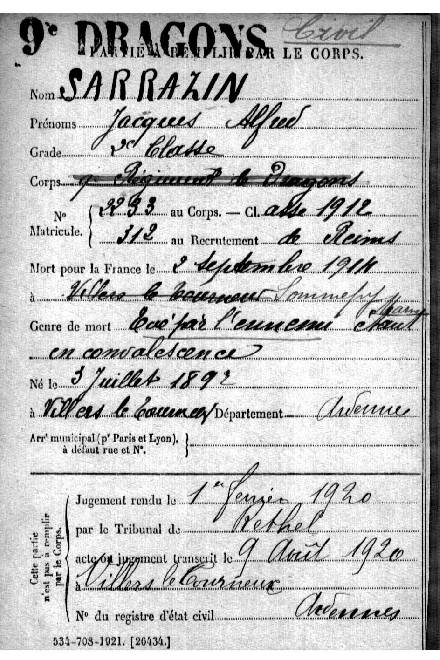 9e DRAGONS Civil
PARTIE À REMPLIR PAR LE CORPS.
Nom SARRAZIN
Prénoms Jacques Alfred
Grade 2e Classe
Corps 9 Régiment de Dragons
No 2293 au Corps. — Cl. asse 1912
Matricule. 312 au Recrutement de Reims
Mort pour la France le 2 septembre 1914
à Villers le Tourneur Sommepy Marne
Genre de mort Tué par l'ennemi étant
en convalescence
Né le 3 Juillet 1892
à Villers le Tourneur Département Ardennes
Arrt municipal (pr Paris et Lyon),
à défaut rue et No.
Cette partie
n'est pas à remplir
par le Corps.
Jugement rendu le 1er février 1920
par le Tribunal de Rethel
acte ou jugement transcrit le 9 Août 1920
à Villers le Tourneux
No du registre d'état civil Ardennes
534-708-1921. [26434.]